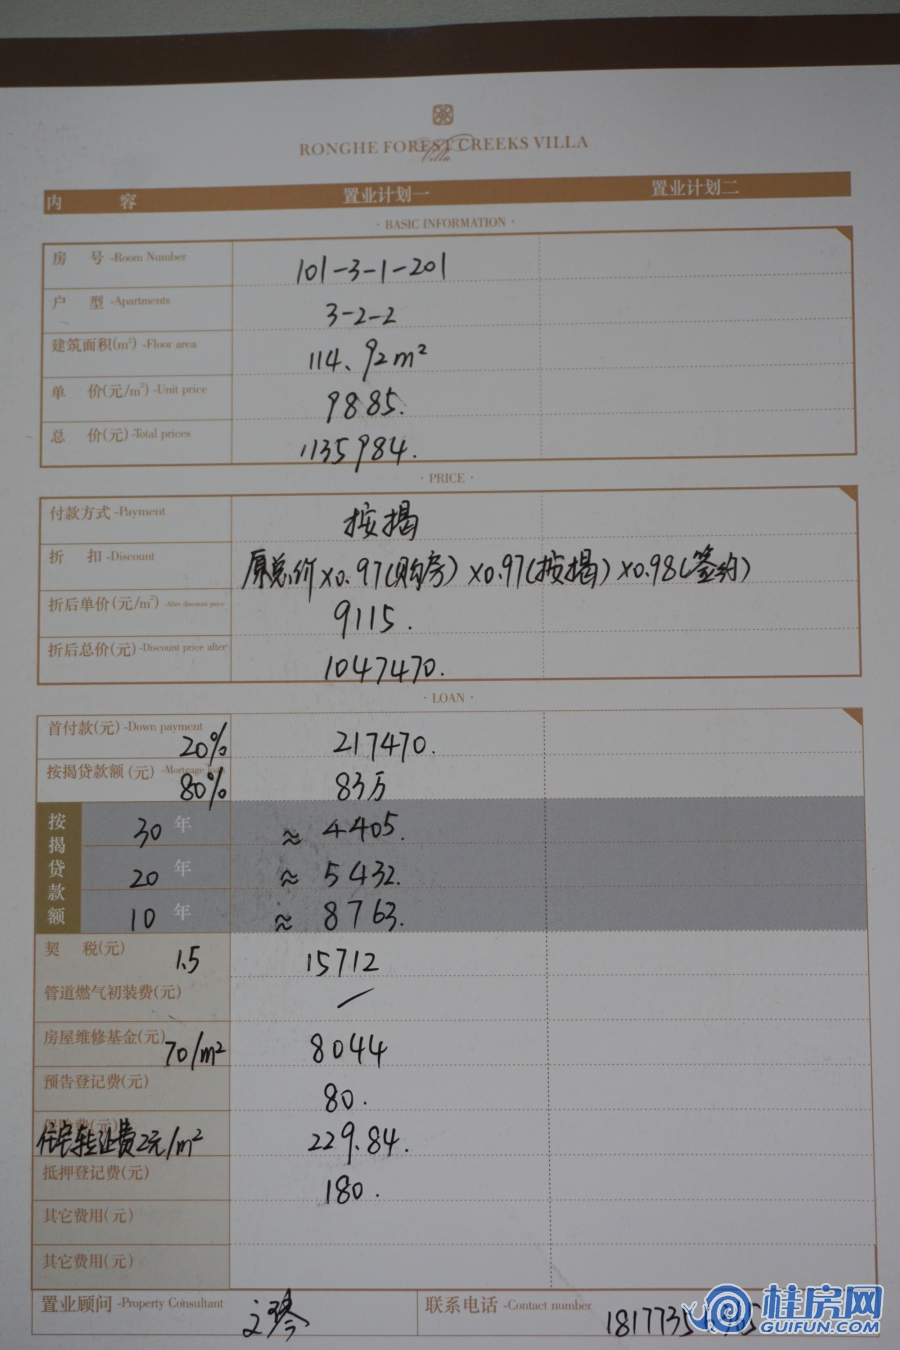 RONGHE FOREST CREEKS VILLA
Villa
内 容 置业计划一 置业计划二
· BASIC INFORMATION ·
房 号 -Room Number 101-3-1-201
户 型 -Apartments 3-2-2
建筑面积(m²) -Floor area 114.92m²
单 价(元/m²) -Unit price 9885.
总 价(元) -Total prices 1135984.
· PRICE ·
付款方式 -Payment 按揭
折 扣 -Discount 原总价×0.97(购房)×0.97(按揭)×0.98(签约)
折后单价(元/m²) -After discount price 9115.
折后总价(元) -Discount price after 1047470.
· LOAN ·
首付款(元) -Down payment 20% 217470.
按揭贷款额(元) -Mortgage 80% 83万
按揭贷款额
30 年 ≈ 4405.
20 年 ≈ 5432.
10 年 ≈ 8763.
契 税(元) 1.5 15712
管道燃气初装费(元) /
房屋维修基金(元) 70/m² 8044
预告登记费(元) 80.
住宅转让费2元/m² 229.84.
抵押登记费(元) 180.
其它费用(元)
其它费用(元)
置业顾问 -Property Consultant 联系电话 -Contact number 1817735
桂房网
GUIFUN.COM